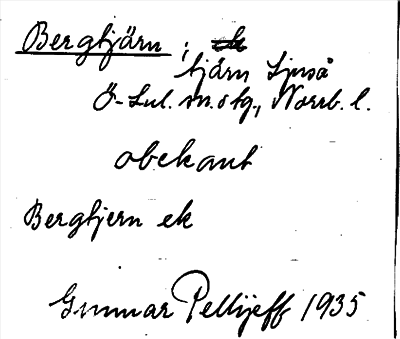 Bergtjärn ;
tjärn Ljuså
Ö-Lul. sn. o tg., Norrb. l.
obekant
Bergtjern ek
Gunnar Pellijeff 1935